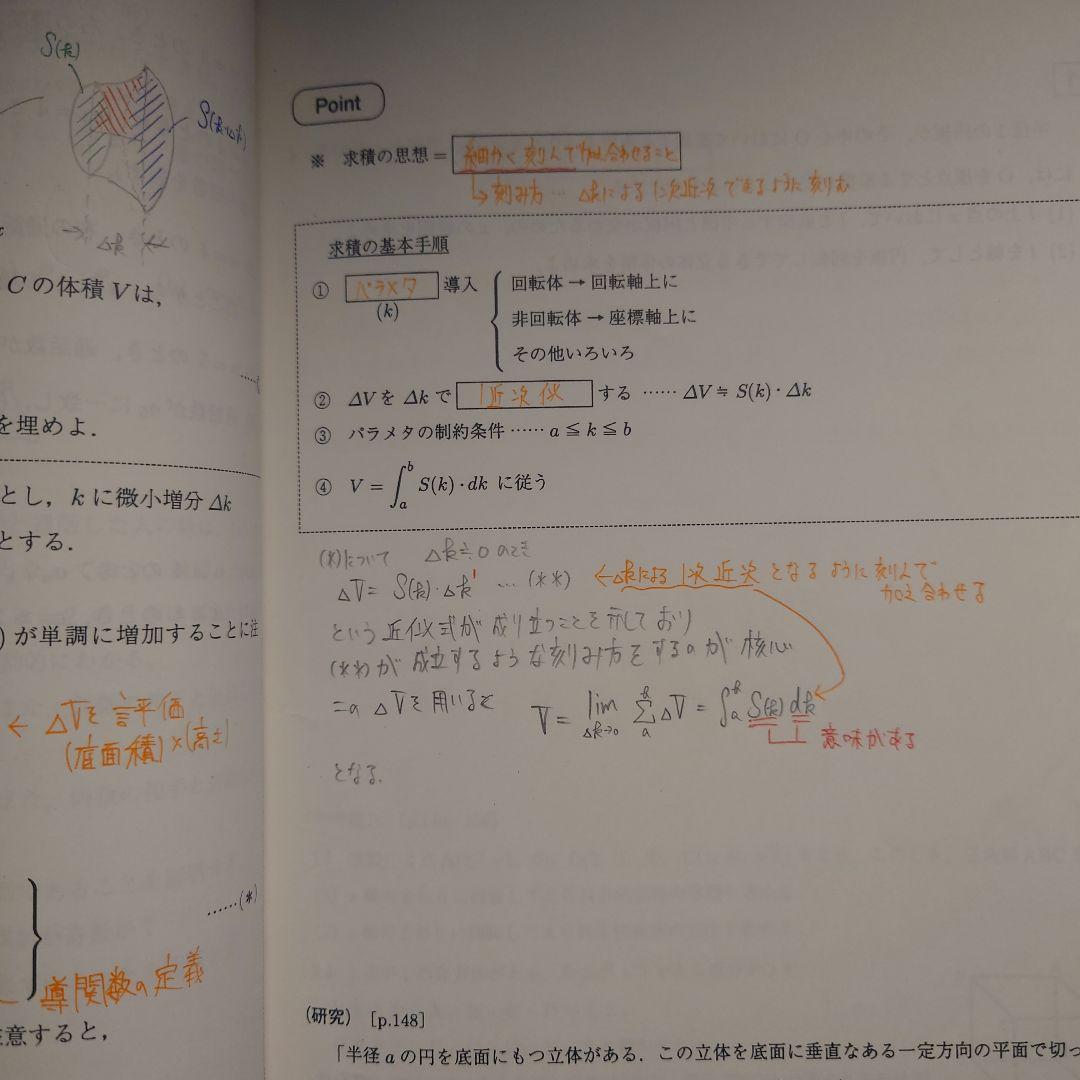 S(k)
S(k+Δk)
Δk
Cの体積Vは,
を埋めよ.
とし, kに微小増分Δk
とする.
)が単調に増加することに注
← ΔVを評価
(底面積)×(高さ)
……(*)
導関数の定義
注意すると,
Point
※ 求積の思想=細かく刻んで加え合わせること
↳刻み方… Δkによる1次近次できるように刻む
求積の基本手順
① パラメタ 導入
(k)
回転体→回転軸上に
非回転体→座標軸上に
その他いろいろ
② ΔVをΔkで 1近次似 する ……ΔV≒S(k)・Δk
③ パラメタの制約条件……a≦k≦b
④ V=∫_a^b S(k)・dk に従う
(*)について Δk≒0のとき
ΔV= S(k)・Δk¹ … (**) ←Δkによる1次近次となるように刻んで
加え合わせる
という近似式が成り立つことを示しており
(**)が成立するような刻み方をするのが核心
このΔVを用いると V = lim_{Δk→0} Σ_a^k ΔV = ∫_a^k S(k) dk
意味がある
となる.
(研究) [p.148]
「半径aの円を底面にもつ立体がある. この立体を底面に垂直なある一定方向の平面で切っ